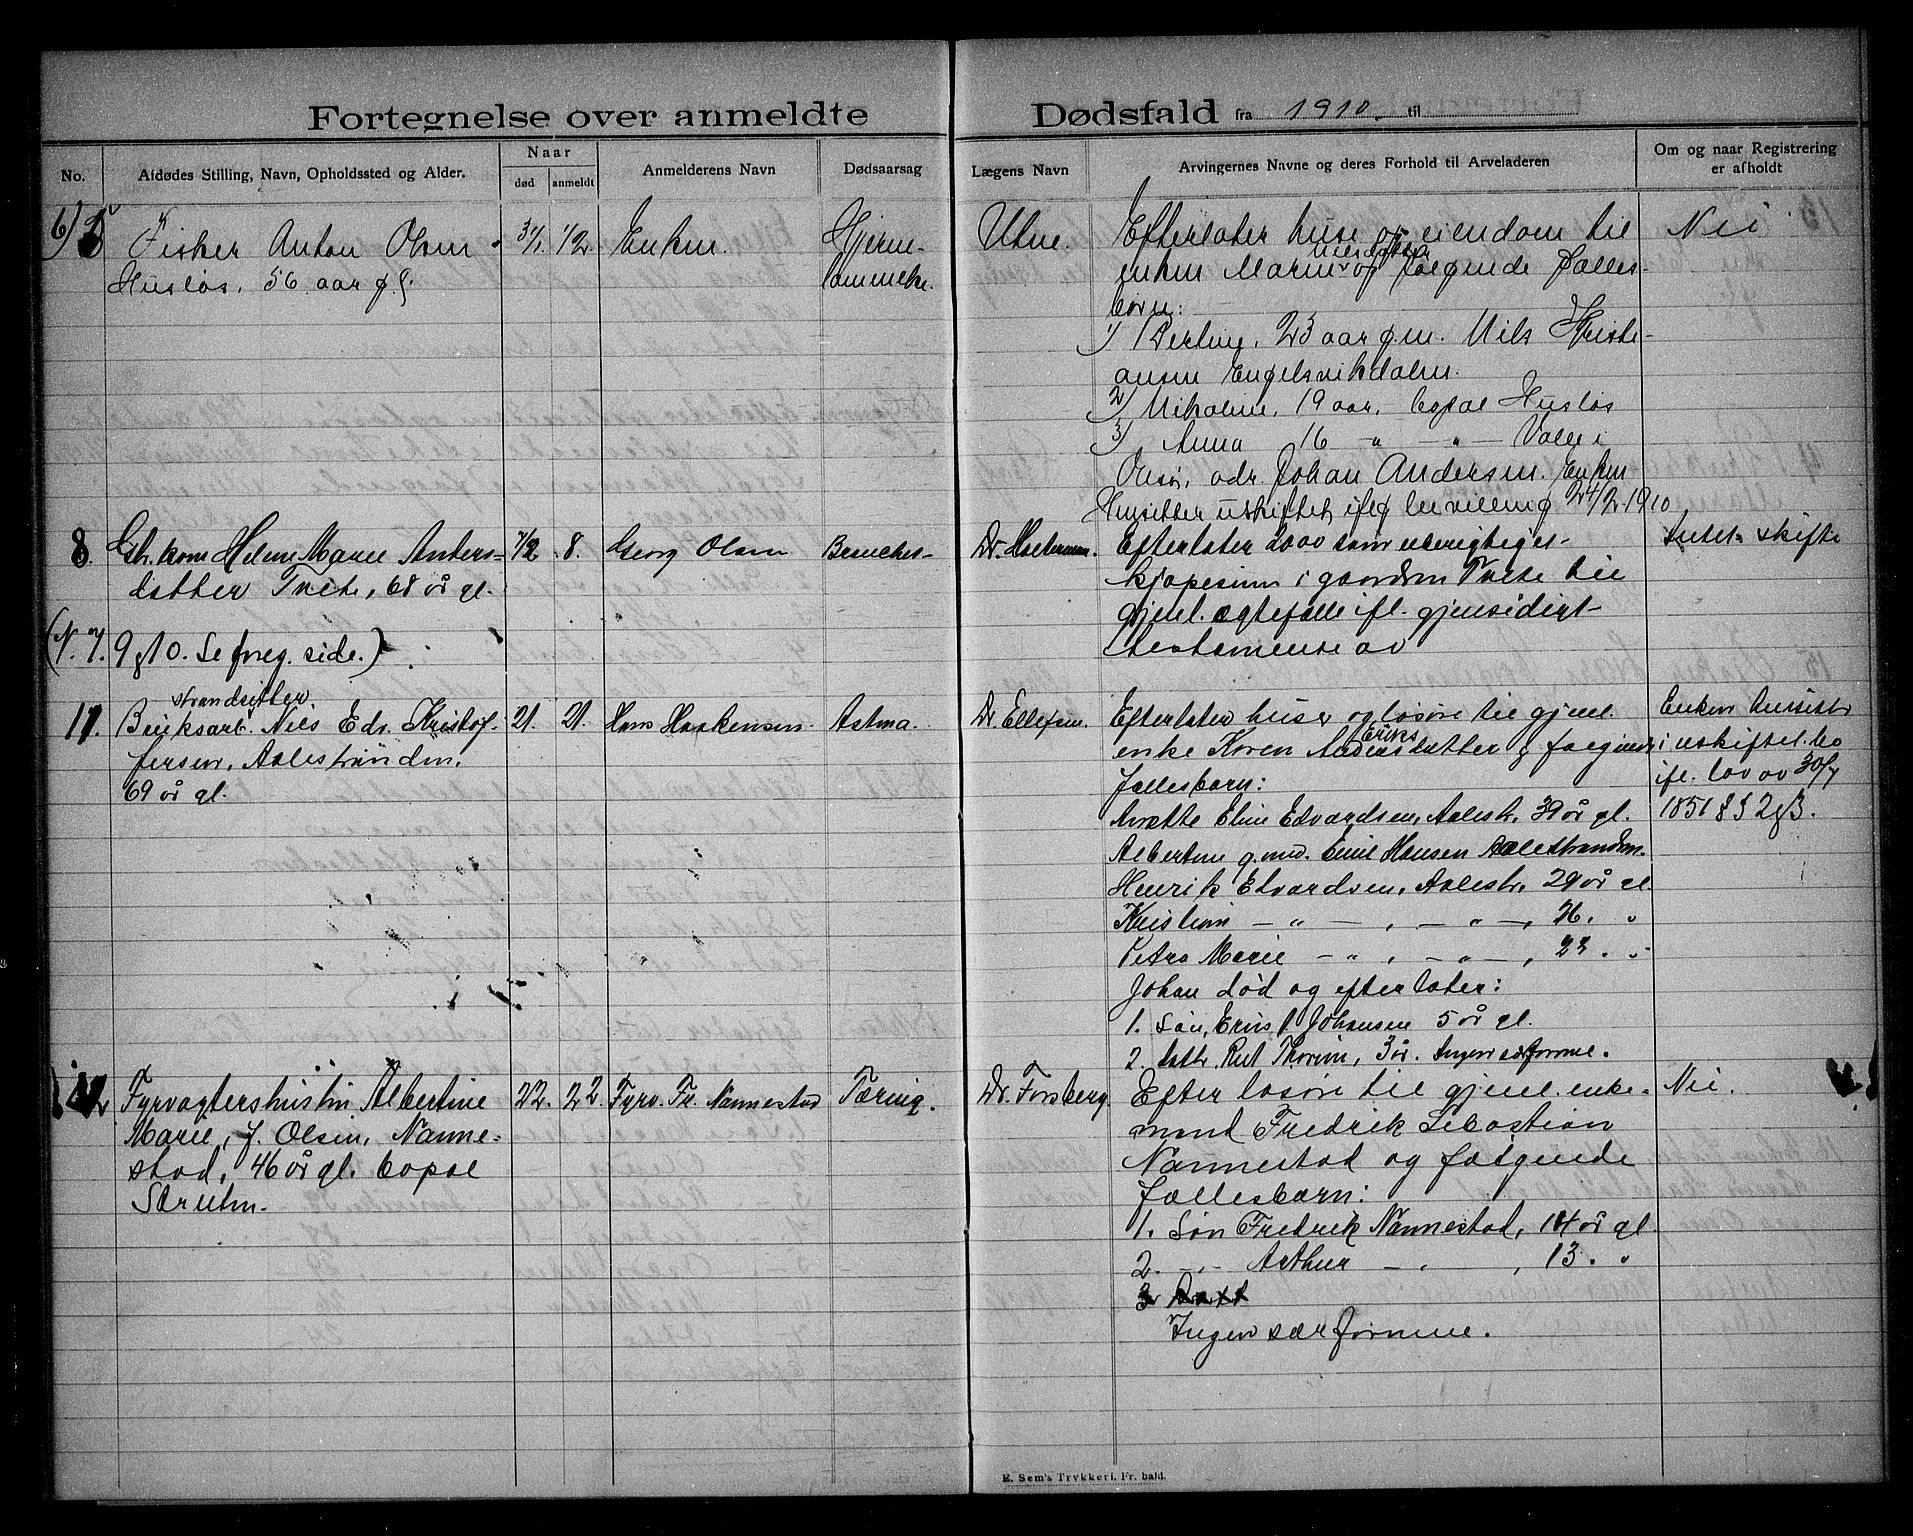 Fortegnelse over anmeldte Dødsfald fra 1910. til
No.
Afdødes Stilling, Navn, Opholdssted og Alder.
Naar
død
anmeldt
Anmelderens Navn
Dødsaarsag
Lægens Navn
Arvingernes Navne og deres Forhold til Arveladeren
Om og naar Registrering
er afholdt
6)
Fisker Anton Olsen
Husløs, 56 aar g.
31/1
1/2
Enken.
Hjerne-
Utne.
Efterlater huse og eiendom til
Nilsdatter
enken Maren og følgende fælles-
børn:
1) Berting, 23 aar g.m. Nils Kristi-
ansen Engelsvikdalen.
2) Nikoline, 19 aar, bopæl Husløs
3) Anna 16 " — " — Valle i
Onsø, adr. Johan Andersen. Enken
hensitter uskiftet iflg bevilling 24/2 1910
Nei
8.
Gbr.kone Helene Marie Anders-
datter Tvete, 68 år gl.
7/2
8.
Georg Olsen
Dr. Holtermann.
Efterlater 2000 som
i gaarden Tvete til
gjenl. ægtefælle ifl. gjensidigt
testamente av
Intet skifte
(N. 7. 9 og 10. Se foreg. side.)
11.
strandsitter
Bruksarb. Nils Edv. Kristof-
fersen, Aalestranden,
69 år gl.
21.
21.
Hans Haakensen
Astma.
Dr. Ellefsen
Efterlater huse og løsøre til gjenl.
Eriks
enke Karen datter og følgende
fællesbarn:
Anette Eline Edvardsen, Aalestr. 39 år gl.
Albertine g. med. Emil Hansen Aalestranden.
Henrik Edvardsen, Aalestr. 29 år gl.
Kristian — " — , — " —, 26. "
Petra Marie — " , — " —, 23. "
Johan død og efterlater:
1. Søn, Ernst Johansen 5 år gl.
2. datter Rut Thorine, 3 år. Ingen særformue.
Enken hensitter
i uskiftet bo
ifl. lov av 30/7
1851 §§ 2 og 3.
12
Fyrvogtershustru Albertine
Marie, f. Olsen, Nanne-
stad, 46 år gl. bopæl
Struten.
22.
22.
Fyrv. Fr. Nannestad
Tæring.
Dr. Forsberg.
Efter løsøre til gjenl. enke-
mand Fredrik Sebastian
Nannestad og følgende
fællesbarn:
1. Søn Fredrik Nannestad, 14 år gl.
2. — " — Arthur — " — , 13. "
3
Ingen særformue.
Nei.
E. Sem's Trykkeri, Fr. hald.